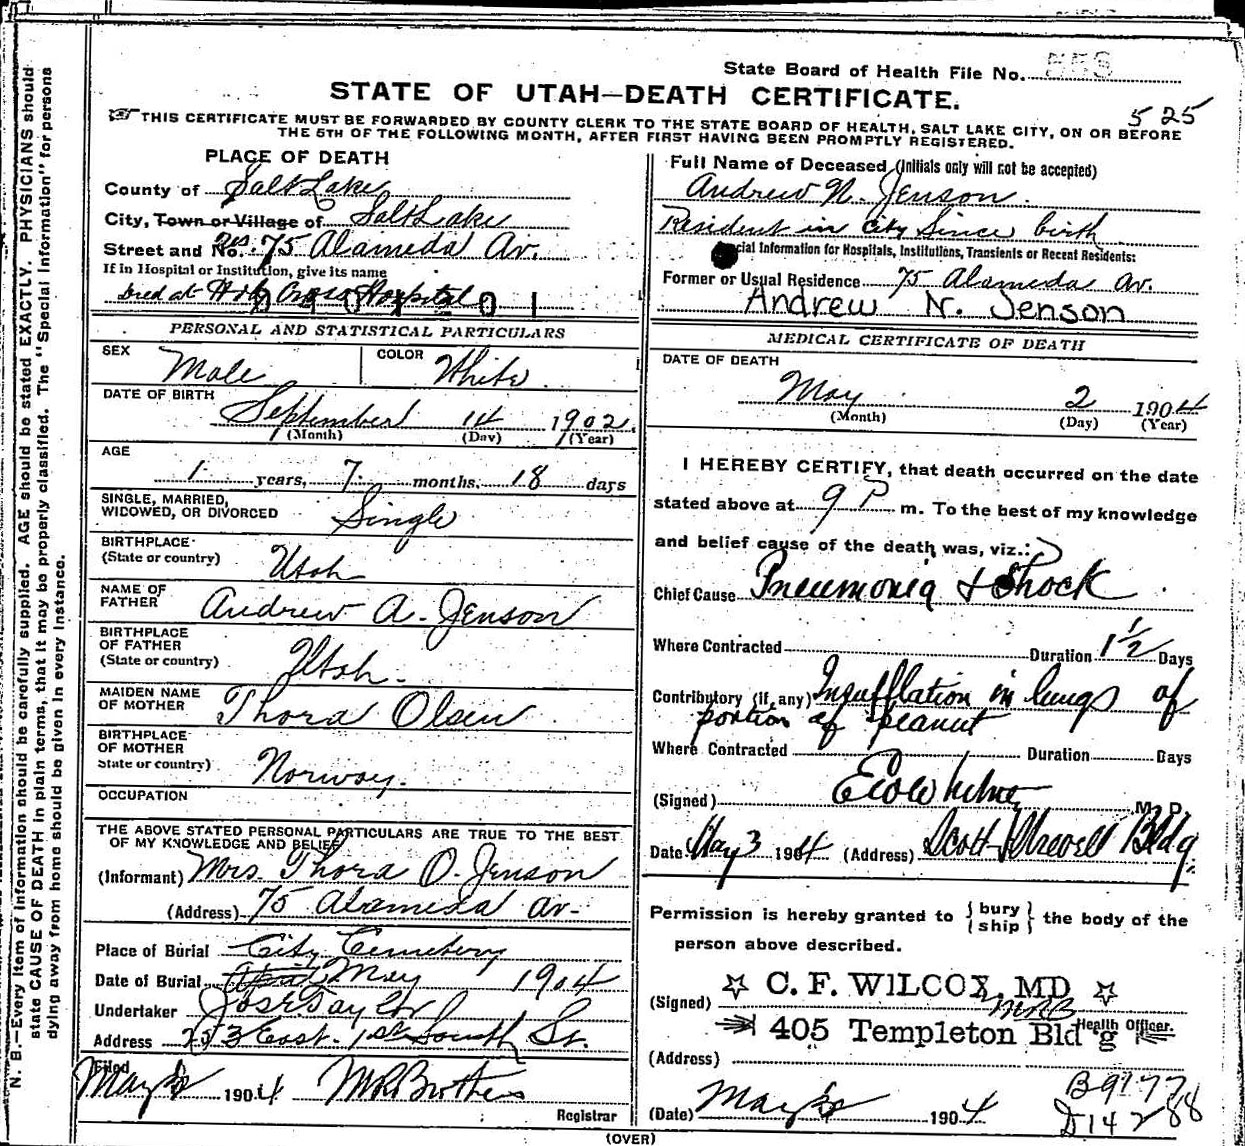 State Board of Health File No.
STATE OF UTAH—DEATH CERTIFICATE.
5 25
THIS CERTIFICATE MUST BE FORWARDED BY COUNTY CLERK TO THE STATE BOARD OF HEALTH, SALT LAKE CITY, ON OR BEFORE
THE 5TH OF THE FOLLOWING MONTH, AFTER FIRST HAVING BEEN PROMPTLY REGISTERED.
PLACE OF DEATH
County of Salt Lake
City, Town or Village of Salt Lake
Street and No. Res. 75 Alameda Av.
If in Hospital or Institution, give its name
Died at Holy Cross Hospital
Full Name of Deceased (Initials only will not be accepted)
Andrew N. Jenson.
Resident in city Since birth
cial Information for Hospitals, Institutions, Transients or Recent Residents:
Former or Usual Residence 75 Alameda Av.
Andrew N. Jenson
PERSONAL AND STATISTICAL PARTICULARS
SEX Male COLOR White
DATE OF BIRTH
September 14 1902
(Month) (Day) (Year)
AGE
1 years, 7 months, 18 days
SINGLE, MARRIED,
WIDOWED, OR DIVORCED Single
BIRTHPLACE
(State or country) Utah
NAME OF
FATHER Andrew A. Jenson
BIRTHPLACE
OF FATHER
(State or country) Utah.
MAIDEN NAME
OF MOTHER Thora Olsen
BIRTHPLACE
OF MOTHER
State or country) Norway.
OCCUPATION
THE ABOVE STATED PERSONAL PARTICULARS ARE TRUE TO THE BEST
OF MY KNOWLEDGE AND BELIEF
(Informant) Mrs. Thora O. Jenson
(Address) 75 Alameda Av-
Place of Burial City Cemetery
Date of Burial April May 1904
Undertaker Jos E Taylor
Address 253 East. 1st South St.
Filed
May 1904
Registrar
MEDICAL CERTIFICATE OF DEATH
DATE OF DEATH
May 2 1904
(Month) (Day) (Year)
I HEREBY CERTIFY, that death occurred on the date
stated above at 9 P m. To the best of my knowledge
and belief cause of the death was, viz.:
Chief Cause Pneumonia & Shock
Where Contracted Duration 1½ Days
Contributory (if any) Insufflation in lungs of
portion of peanut
Where Contracted Duration Days
(Signed) M. D.
Date May 3 1904 (Address) Bldg.
Permission is hereby granted to {bury
ship} the body of the
person above described.
(Signed) C. F. WILCOX, MD
405 Templeton Bld'g Health Officer.
(Address)
(Date) May 1904
B 9177
D 14288
(OVER)
N. B.—Every item of Information should be carefully supplied. AGE should be stated EXACTLY. PHYSICIANS should
state CAUSE OF DEATH in plain terms, that it may be properly classified. The "Special Information" for persons
dying away from home should be given in every instance.